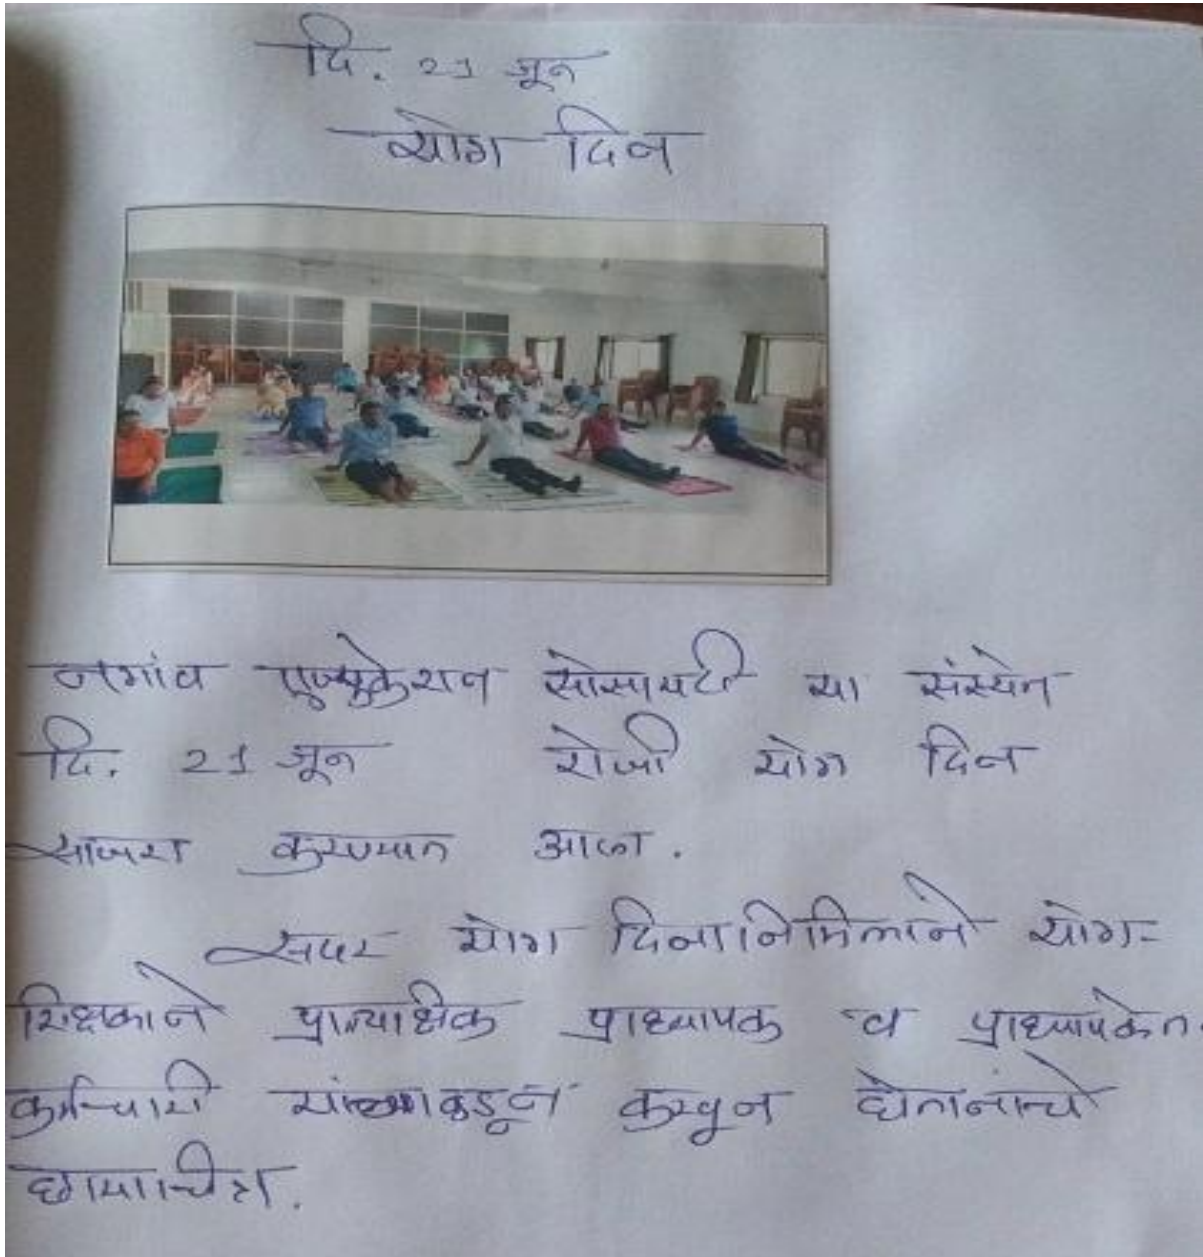 दि. 21 जून
योग दिन
नगांव एज्युकेशन सोसायटी या संस्थेत
दि. 21 जून रोजी योग दिन
साजरा करण्यात आला.
सदर योग दिनानिमित्ताने योग-
शिक्षकाने प्रात्याक्षिक प्राध्यापक व प्राध्यापकेत्तर
कर्मचारी यांच्याकडून करवून घेतानांचे
छायाचित्र.